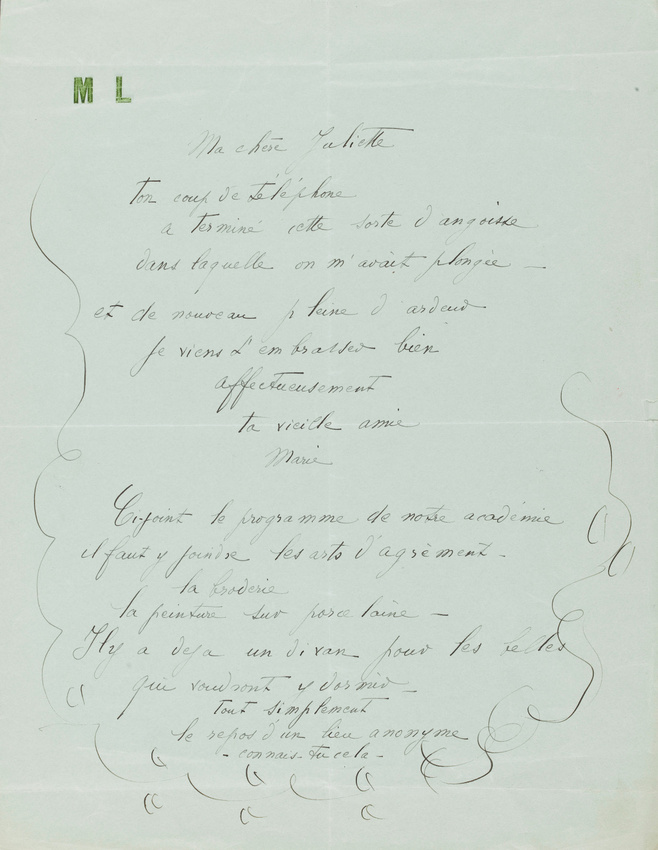 M L
Ma chère Juliette
ton coup de téléphone
a terminé cette sorte d'angoisse
dans laquelle on m'avait plongée —
et de nouveau pleine d'ardeur
je viens t'embrasser bien
affectueusement
ta vieille amie
Marie
Ci-joint le programme de notre académie
il faut y joindre les arts d'agrèment -
la broderie
la peinture sur porcelaine —
Il y a deja un divan pour les belles
qui voudront y dormir —
tout simplement
le repos d'un lieu anonyme
- connais-tu cela -